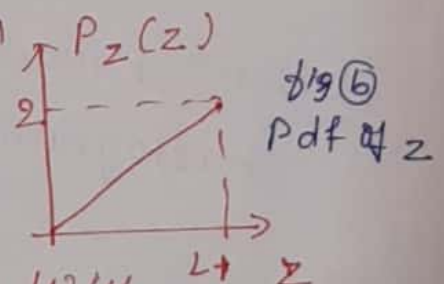 P_z(z)
2
fig (b)
Pdf of z
L-1 z